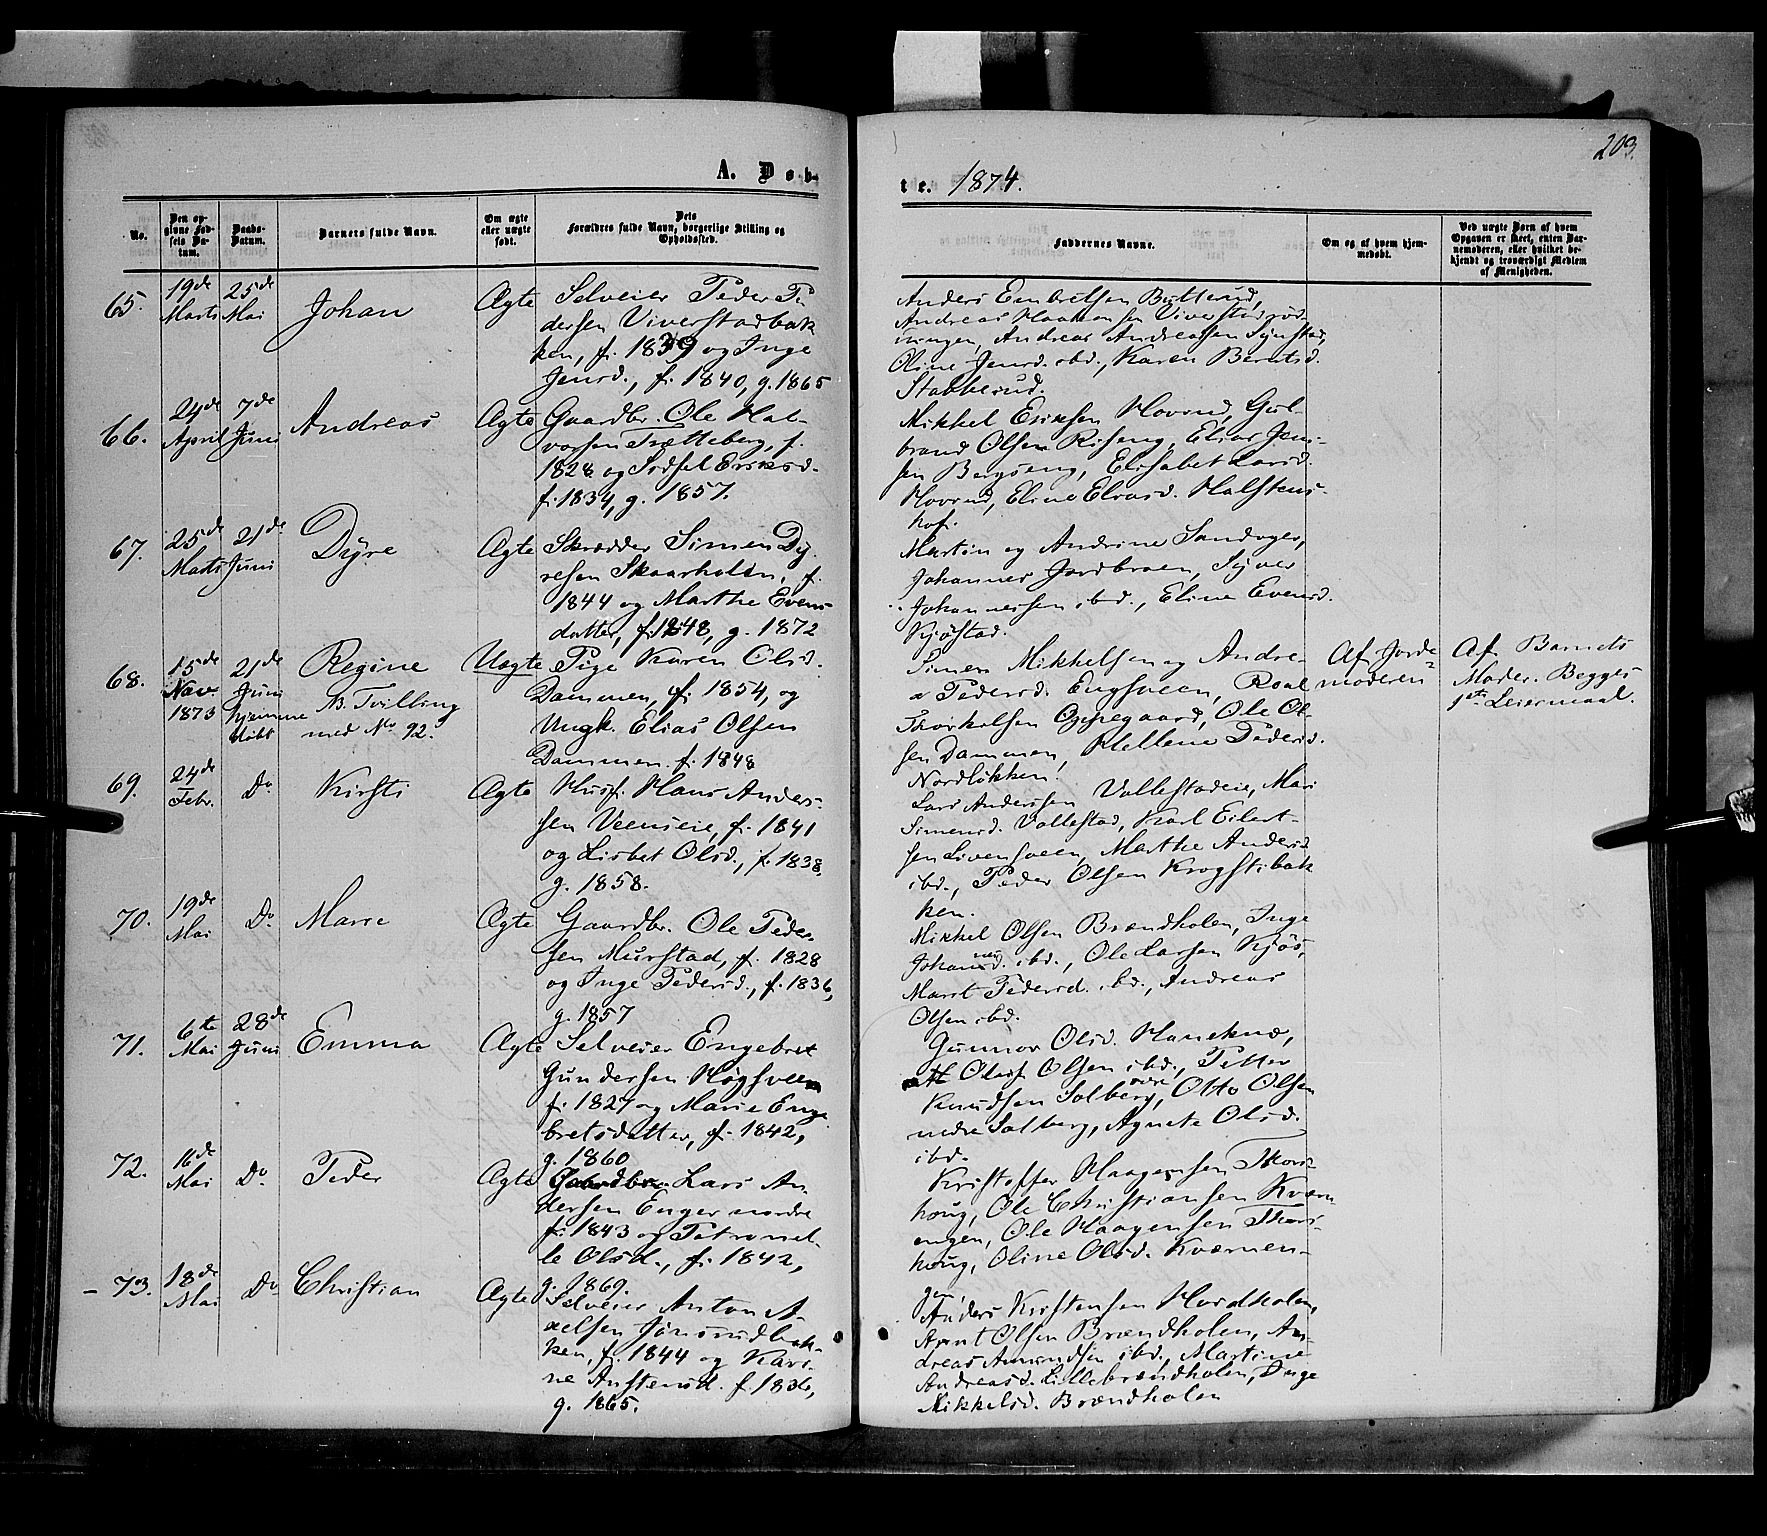 203.
A. Døb-
te. 1874.
No.
Den op-
givne Fød-
sels Da-
tum.
Daabs-
Datum.
Barnets fulde Navn.
Om ægte
eller uægte
født.
Dets
Forældres fulde Navn, borgerlige Stilling og
Opholdssted.
Faddernes Navne.
Om og af hvem hjem-
medøbt.
Ved uægte Børn af hvem
Opgaven er skeet, enten Bar-
nemoderen, eller hvilket be-
kjendt og troværdigt Medlem
af Menigheden.
65.
19de
Marts
25de
Mai
Johan
Ægte
Selveier Peder Pe-
dersen Viverstadbak
ken, f. 1839 og Inge
Jensd., f. 1840, g. 1865
Anders Embretsen Botterud,
Andreas Haakensen Viverstadrød-
ningen, Andreas Andreassen Synstad,
Oline Jensd. ibd., Karen Berntsd.
Stabberud.
66.
24de
April
7de
Juni
Andreas
Ægte
Gaardbr. Ole Hal-
vorsen Trætteberg, f.
1828 og Sidsel Eriksd.
f. 1834, g. 1857.
Mikkel Eriksen Hovrud, Gul-
brand Olsen Riseng, Elias Jen-
sen Bergseng, Elisabet Larsd.
Hovrud, Eline Eliasd. Halstens-
hof.
67.
25de
Marts
21de
Juni
Dyre
Ægte
Skrædder Simen Dy-
resen Skaarholen, f.
1844 og Marthe Evens-
datter, f. 1848, g. 1872
Martin og Andrine Sandager,
Johannes Jordbroen, Syver
Johannessen ibd., Eline Evensd.
Kjøstad.
68.
15de
Nov.
1873
21de
Juni
hjemme
døbt
Regine
NB. Tvilling
med No 92.
Uægte
Pige Karen Olsd.
Dammen, f. 1854, og
Ungk. Elias Olsen
Dammen f. 1848
Simen Mikkelsen og Andre-
a Pedersd. Engsveen, Roal
Thorkelsen Oppegaard, Ole Ol-
sen Dammen, Hellene Pedersd.
Nordløkken.
Af Jorde-
moderen
Af Barnets
Moder. Begges
1ste Leiermaal.
69.
24de
Febr.
Do
Kirsti
Ægte
Husf. Hans Anders-
sen Veenseie, f. 1841
og Lisbet Olsd., f. 1838,
g. 1858.
Lars Anderssen Vollestadeie, Mari
Simensd. Vollestad, Karl Eilert-
sen Livensveen, Marthe Andersd.
ibd., Peder Olsen Krogstibak
ken.
70.
19de
Mai
Do
Marie
Ægte
Gaardbr. Ole Peder-
sen Murstad, f. 1828
og Inge Pedersd., f. 1836,
g. 1857
Mikkel Olsen Brændholen, Inge
Johannesd. ibd., Ole Larsen Kjøs,
Marit Pedersd. ibd., Andreas
Olsen ibd.
71.
6te
Mai
28de
Juni
Emma
Ægte
Selveier Engebret
Gundersen Høgsveen
f. 1827 og Marie Enge
bretsdatter, f. 1842,
g. 1860
Gunnor Olsd. Haneknæ,
Oluf Olsen ibd., Petter
Knudsen Solberg øvre, Otto Olsen
nedre Solberg, Agnete Olsd.
ibd.
72.
16de
Mai
Do
Peder
Ægte
Gaardbr. Lars An-
dersen Enger nordre
f. 1843 og Petronel-
le Olsd., f. 1842,
g. 1869.
Kristoffer Haagensen Thors-
houg, Ole Christiansen Kværn
engen, Ole Haagensen Thors-
houg, Oline Olsd. Kværnen-
gen.
73.
18de
Mai
Do
Christian
Ægte
Selveier Anton A-
xelsen Jønsrudbak-
ken, f. 1844 og Kari-
ne Anstensd. f. 1836,
g. 1865.
Anders Kristensen Hvidholen,
Arnt Olsen Brændholen, An-
dreas Amundsen ibd., Martine
Andreasd. Lillebrændholen, Inge
Mikkelsd. Brændholen